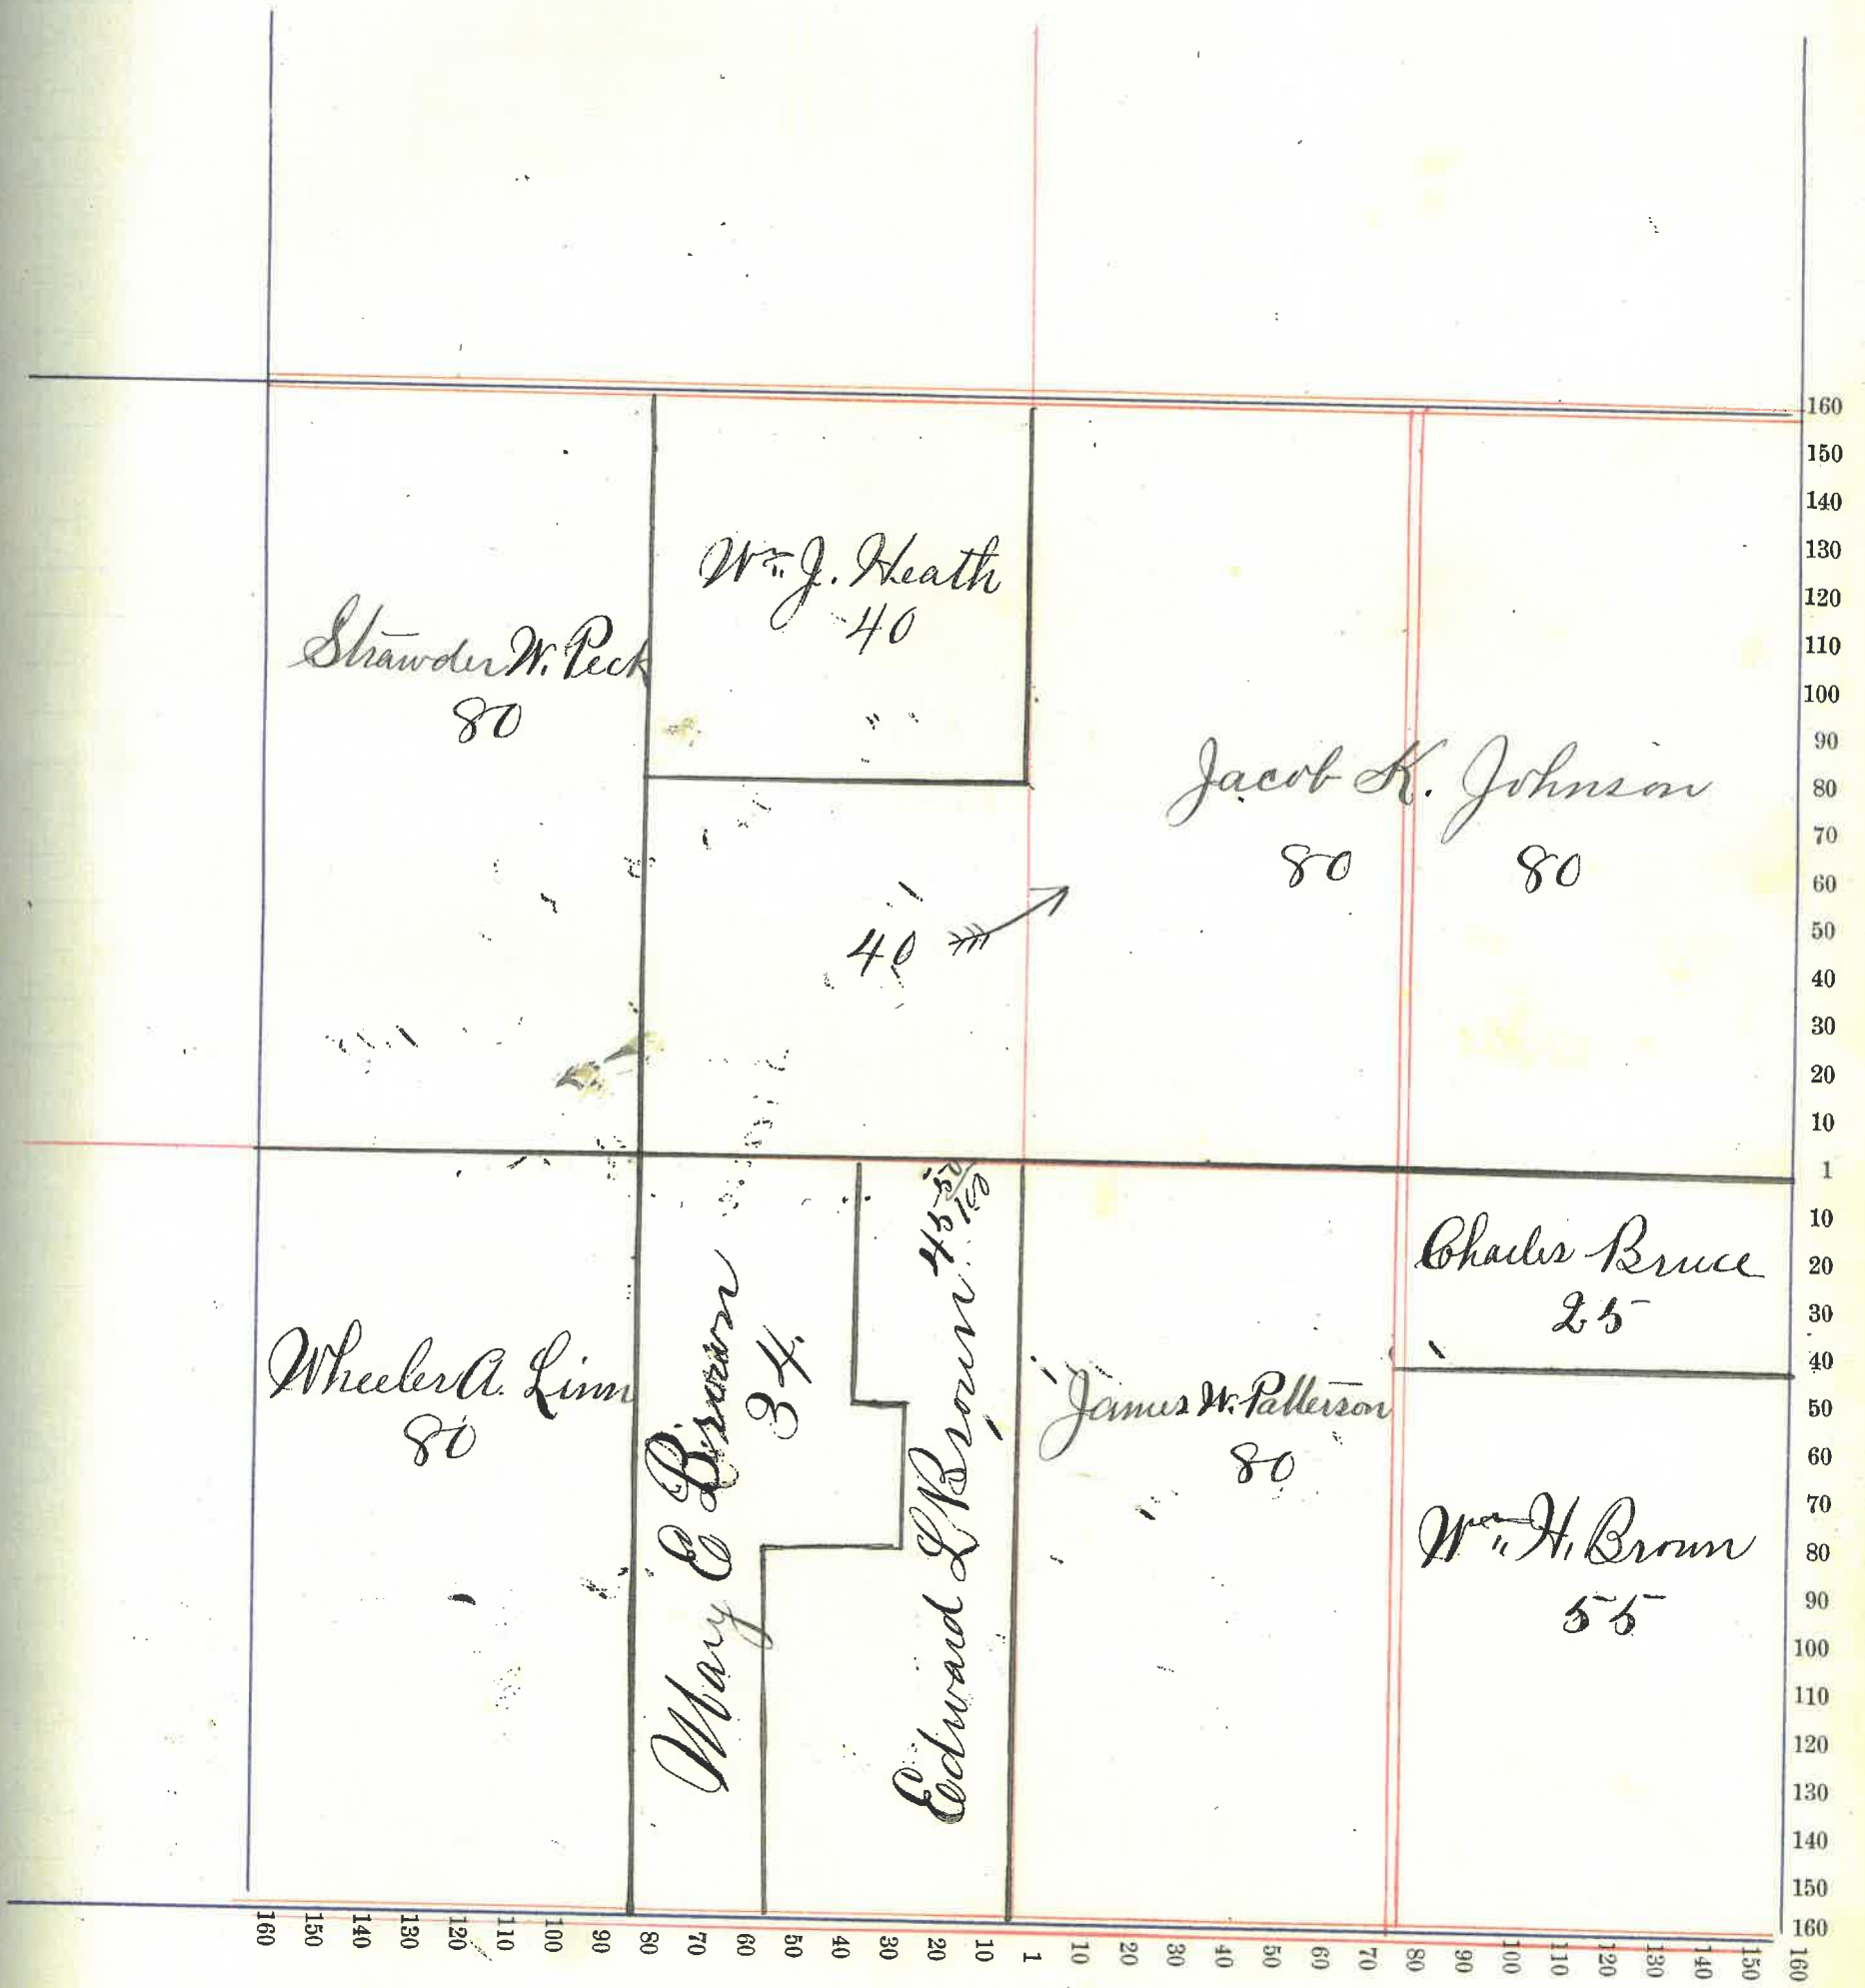 Wm. J. Heath
40
Strawder W. Peck
80
Jacob K. Johnson
80 80
40
Charles Bruce
25
Wheeler A. Linn
80
Mary E Brown
34
Edward L Brown 45 50/160
James W. Patterson
80
Wm. H. Brown
55
160
150
140
130
120
110
100
90
80
70
60
50
40
30
20
10
1
10
20
30
40
50
60
70
80
90
100
110
120
130
140
150
160
160 150 140 130 120 110 100 90 80 70 60 50 40 30 20 10 1 10 20 30 40 50 60 70 80 90 100 110 120 130 140 150 160